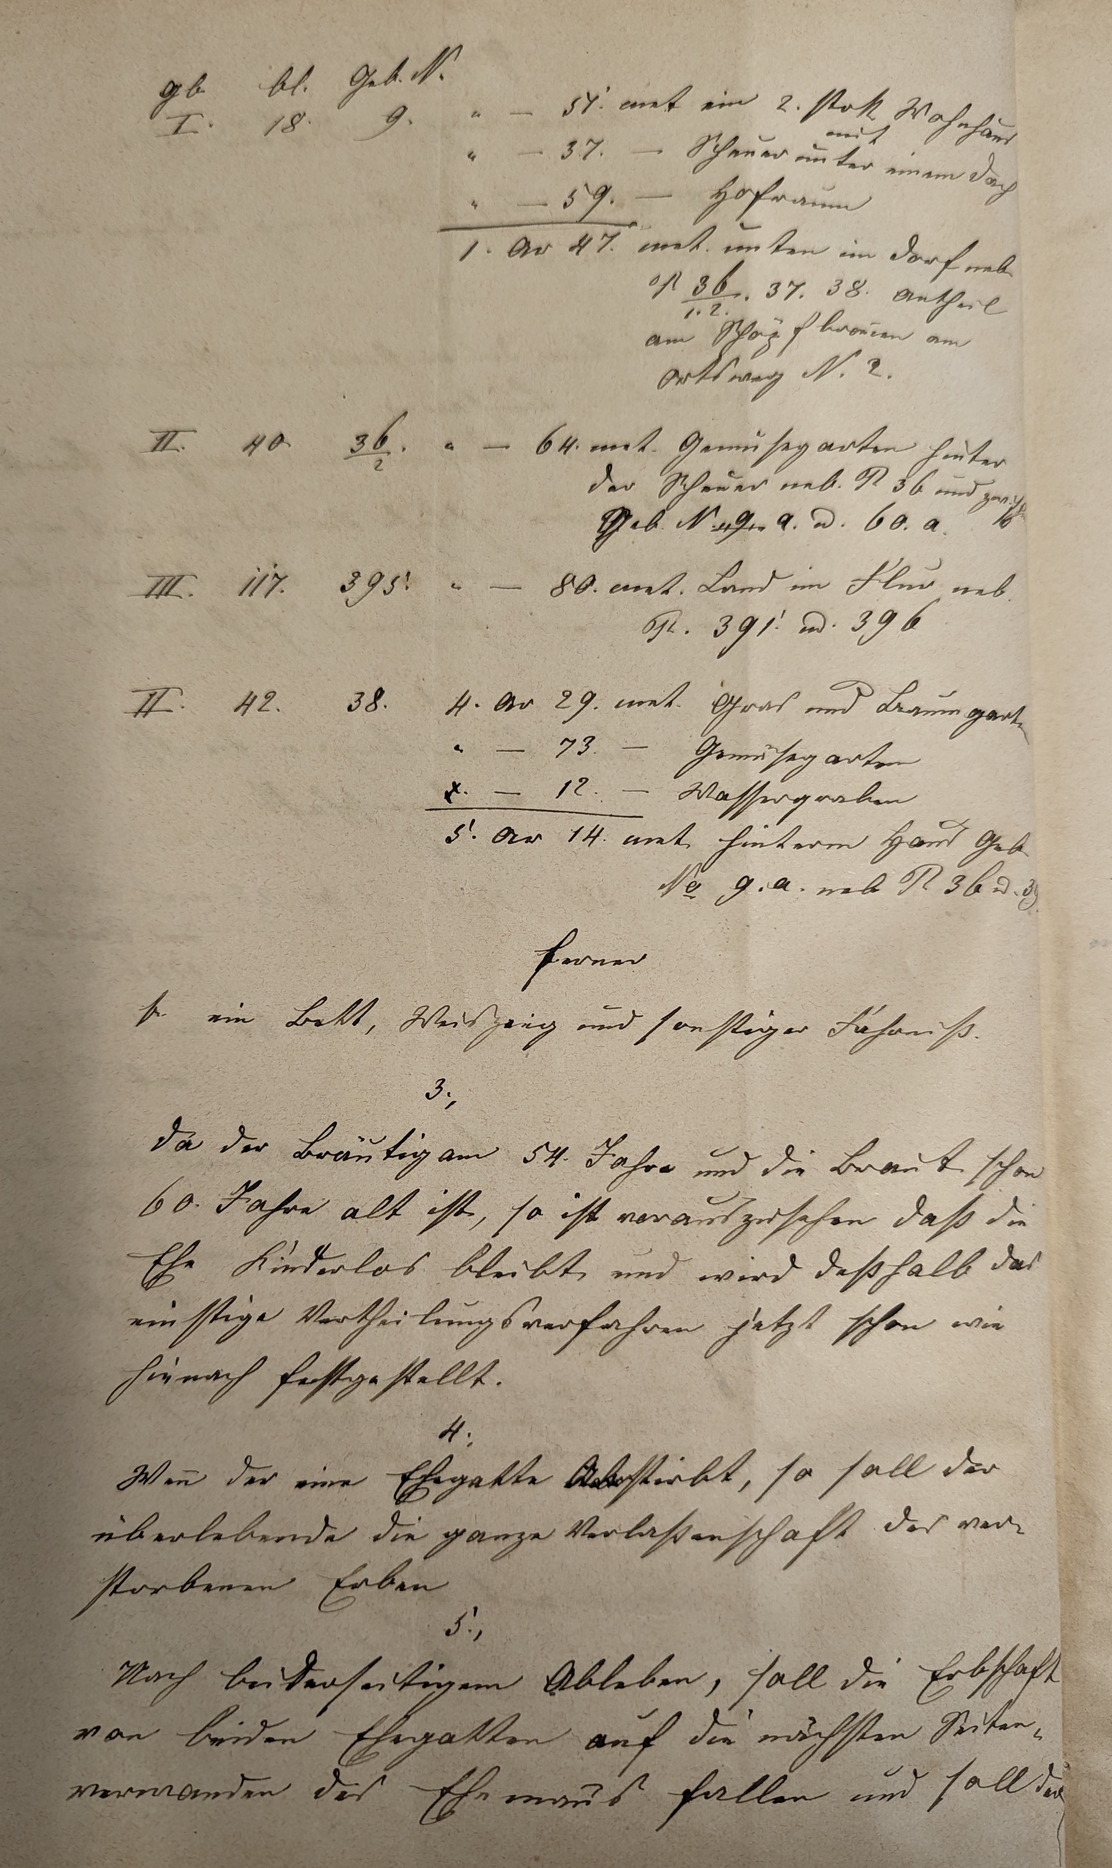 gb. bl. Geb. N.
I. 18. 9. " — 51. met ein 2. stok Wohnhaus
mit
" — 37. — Scheuer unter einem Dach
" — 59. — Hofraum
1. ar 47. met. unten im Dorf neb.
P 36/1.2. 37. 38. Antheil
am Schöpfbrunnen am
Ortsweg N. 2.
II. 40. 36/2. " — 64. met. Gemüsegarten hinter
der Scheuer neb. P 36 und
Geb. N 9. a. u. 60. a.
III. 117. 395. " — 80. met. Land im Flur neb.
P. 391. u. 396
II. 42. 38. 4. ar 29. met. Gras und Baumgart.
" — 73. — Gemüsegarten
" — 12. — Wassergraben
5. ar 14. met. hinterm Haus Geb.
No 9. a. neb P 36 u. 39.
ferner
ein Bett, Weiszeug und sonstiger Fahrniß.
3.,
Da der Bräutigam 54. Jahre und die Braut schon
60. Jahre alt ist, so ist vorauszusehen daß die
Ehe Kinderlos bleibt und wird deßhalb das
einstige Vertheilungsverfahren jetzt schon wie
hienach festgestellt.
4.,
Wen̄ der eine Ehegatte Abstirbt, so soll der
überlebende die ganze Verlaßenschaft des ver-
storbenen Erben
5.,
Nach beiderseitigem Ableben, soll die Erbschaft
von beiden Ehegatten auf die nächsten Seiten-
verwanden des Ehemans fallen und soll der